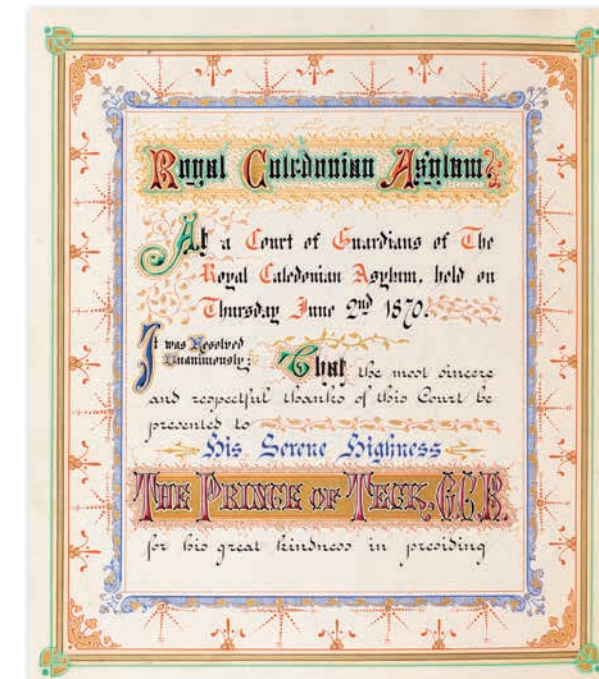 Royal Caledonian Asylum
At a Court of Guardians of The
Royal Caledonian Asylum, held on
Thursday June 2nd 1870.
It was Resolved
Unanimously: That the most sincere
and respectful thanks of this Court be
presented to
His Serene Highness
THE PRINCE OF TECK, G.C.B.
for his great kindness in presiding